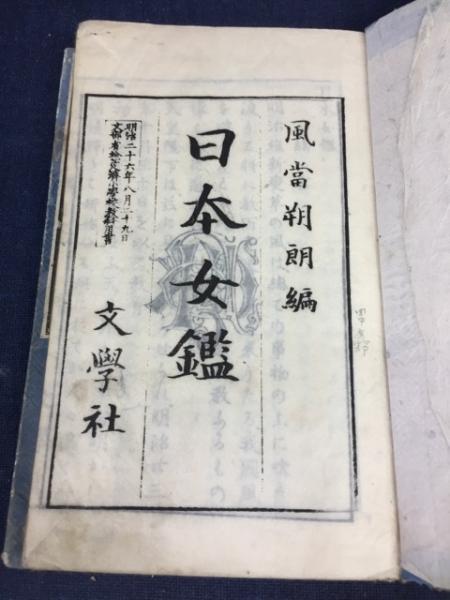 風當朔朗編
日本女鑑
明治二十六年八月二十九日
文部省檢定濟小學校教科用書
文學社